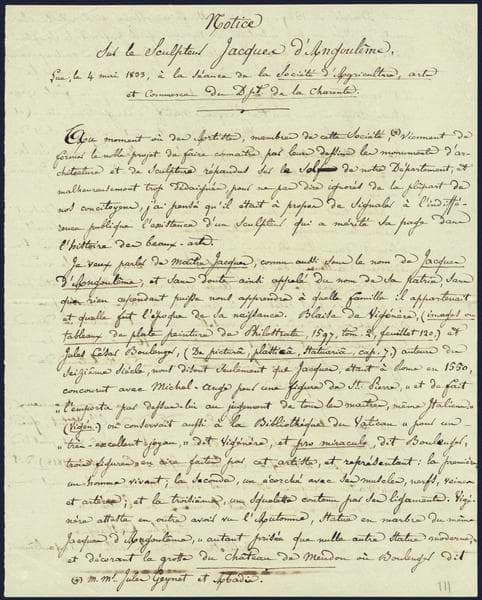 Notice
Sur le Sculpteur Jacques d'Angoulême,
Lue, le 4 mai 1833, à la séance de la Société d'Agriculture, arts
et Commerce du Dpt. de la Charente.
Au moment où des Artistes, membres de cette Société viennent de
former le noble projet de faire connaître par leurs dessins les monumens d'ar-
chitecture et de Sculpture répandus sur le sol de notre Département, et
malheureusement trop dédaignés, pour ne pas dire ignorés de la plupart de
nos concitoyens, j'ai pensé qu'il était à propos de signaler à l'indiffé-
rence publique l'existence d'un Sculpteur qui a mérité sa page dans
l'histoire des beaux-arts.
Je veux parler de maître Jacques, connu aussi sous le nom de Jacques
D'Angoulême, et sans doute ainsi appelé du nom de sa patrie, sans
que rien cependant puisse nous apprendre à quelle famille il appartenait
et quelle fut l'époque de sa naissance. Blaise de Vigénère, (images ou
tableaux de plate peinture de Philostrate, 1597, tom. 2, feuillet 120,) et
Jules César Boulenger, (De pictura, plastica, Statuaria, cap. 7.) auteurs du
Seizième Siècle, nous disent seulement que Jacques, étant à Rome en 1550,
concourut avec Michel-Ange pour une figure de St. Pierre, « et de fait
« l'emporta par dessus lui au jugement de tous les maîtres, même Italiens »
(Vigén.) on conservait aussi à la Bibliothèque du Vatican « pour un
« très-excellent joyau, » dit Vigénère, et pro miraculo, dit Boulenger,
trois figures en cire faites par cet artiste et représentant : la première
un homme vivant; la seconde, un écorché avec ses muscles, nerfs, veines
et artères; et la troisième, un squelette contenu par ses ligamens. Vigé-
nère atteste en outre avoir vu l'Automne, statue en marbre du même
Jacques d'Angoulême, « autant prisée que nulle autre statue moderne, »
et décorant la grotte du Château de Meudon où Boulenger dit
m. mrs. Jules Geynet et Abadie.